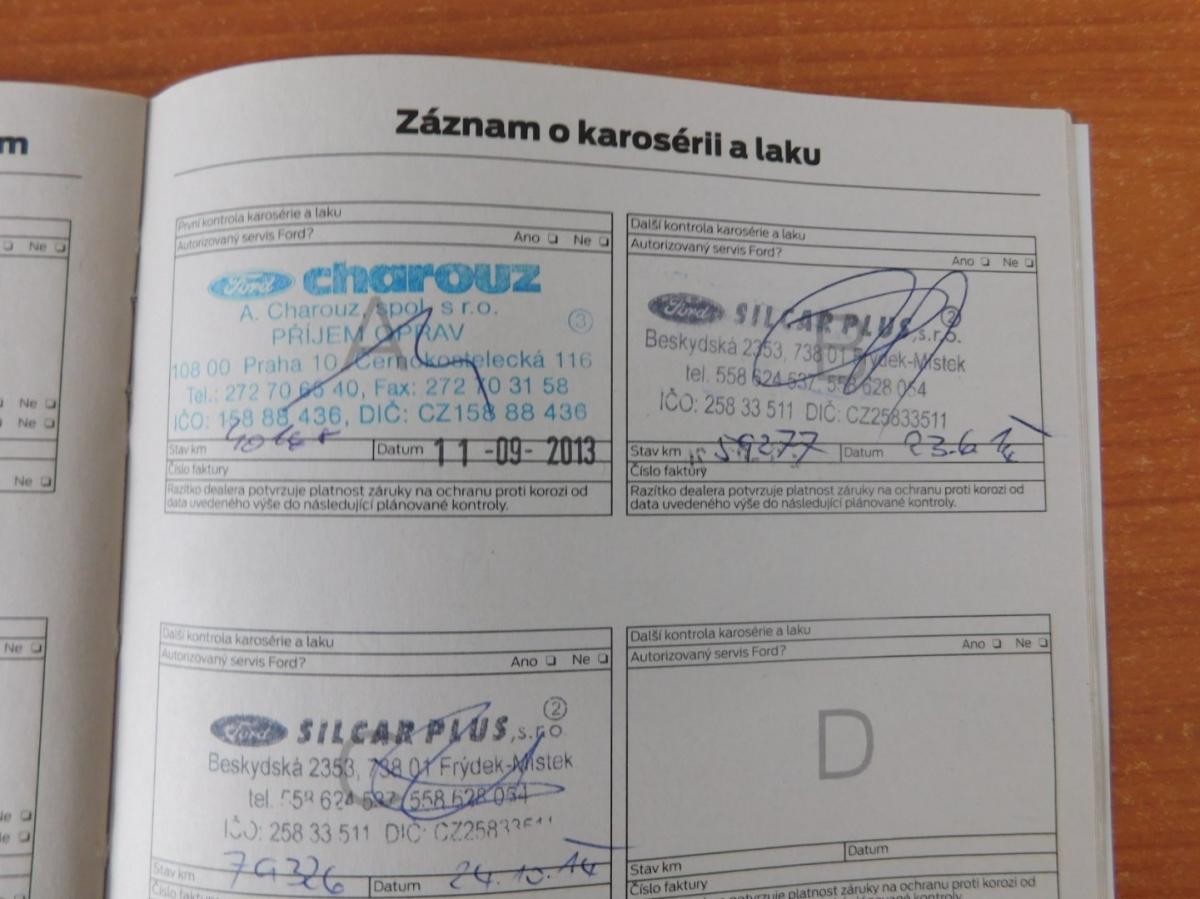 m
Záznam o karosérii a laku
Ne
Ne
Ne
Ne
První kontrola karosérie a laku
Autorizovaný servis Ford? Ano Ne
Ford charouz
A. Charouz, spol. s r.o. 3
PŘÍJEM OPRAV
A
108 00 Praha 10, Černokostelecká 116
Tel.: 272 70 65 40, Fax: 272 70 31 58
IČO: 158 88 436, DIČ: CZ158 88 436
Stav km Datum 11 -09- 2013
Číslo faktury
Razítko dealera potvrzuje platnost záruky na ochranu proti korozi od
data uvedeného výše do následující plánované kontroly.
Další kontrola karosérie a laku
Autorizovaný servis Ford?
Ano Ne
Ford SILCAR PLUS, s.r.o. 2
B
Beskydská 2353, 738 01 Frýdek-Místek
tel. 558 624 537, 558 628 054
IČO: 258 33 511 DIČ: CZ25833511
Stav km 59277 Datum 23.6 14
Číslo faktury
Razítko dealera potvrzuje platnost záruky na ochranu proti korozi od
data uvedeného výše do následující plánované kontroly.
Ne
Ne
Ne
Další kontrola karosérie a laku
Autorizovaný servis Ford? Ano Ne
Ford SILCAR PLUS, s.r.o. 2
C
Beskydská 2353, 738 01 Frýdek-Místek
tel. 558 624 537, 558 628 054
IČO: 258 33 511 DIČ: CZ25833511
Stav km 79326 Datum 24.10.14
Číslo faktury
Další kontrola karosérie a laku
Autorizovaný servis Ford? Ano Ne
D
Stav km Datum
Číslo faktury
Razítko dealera potvrzuje platnost záruky na ochranu proti korozi od